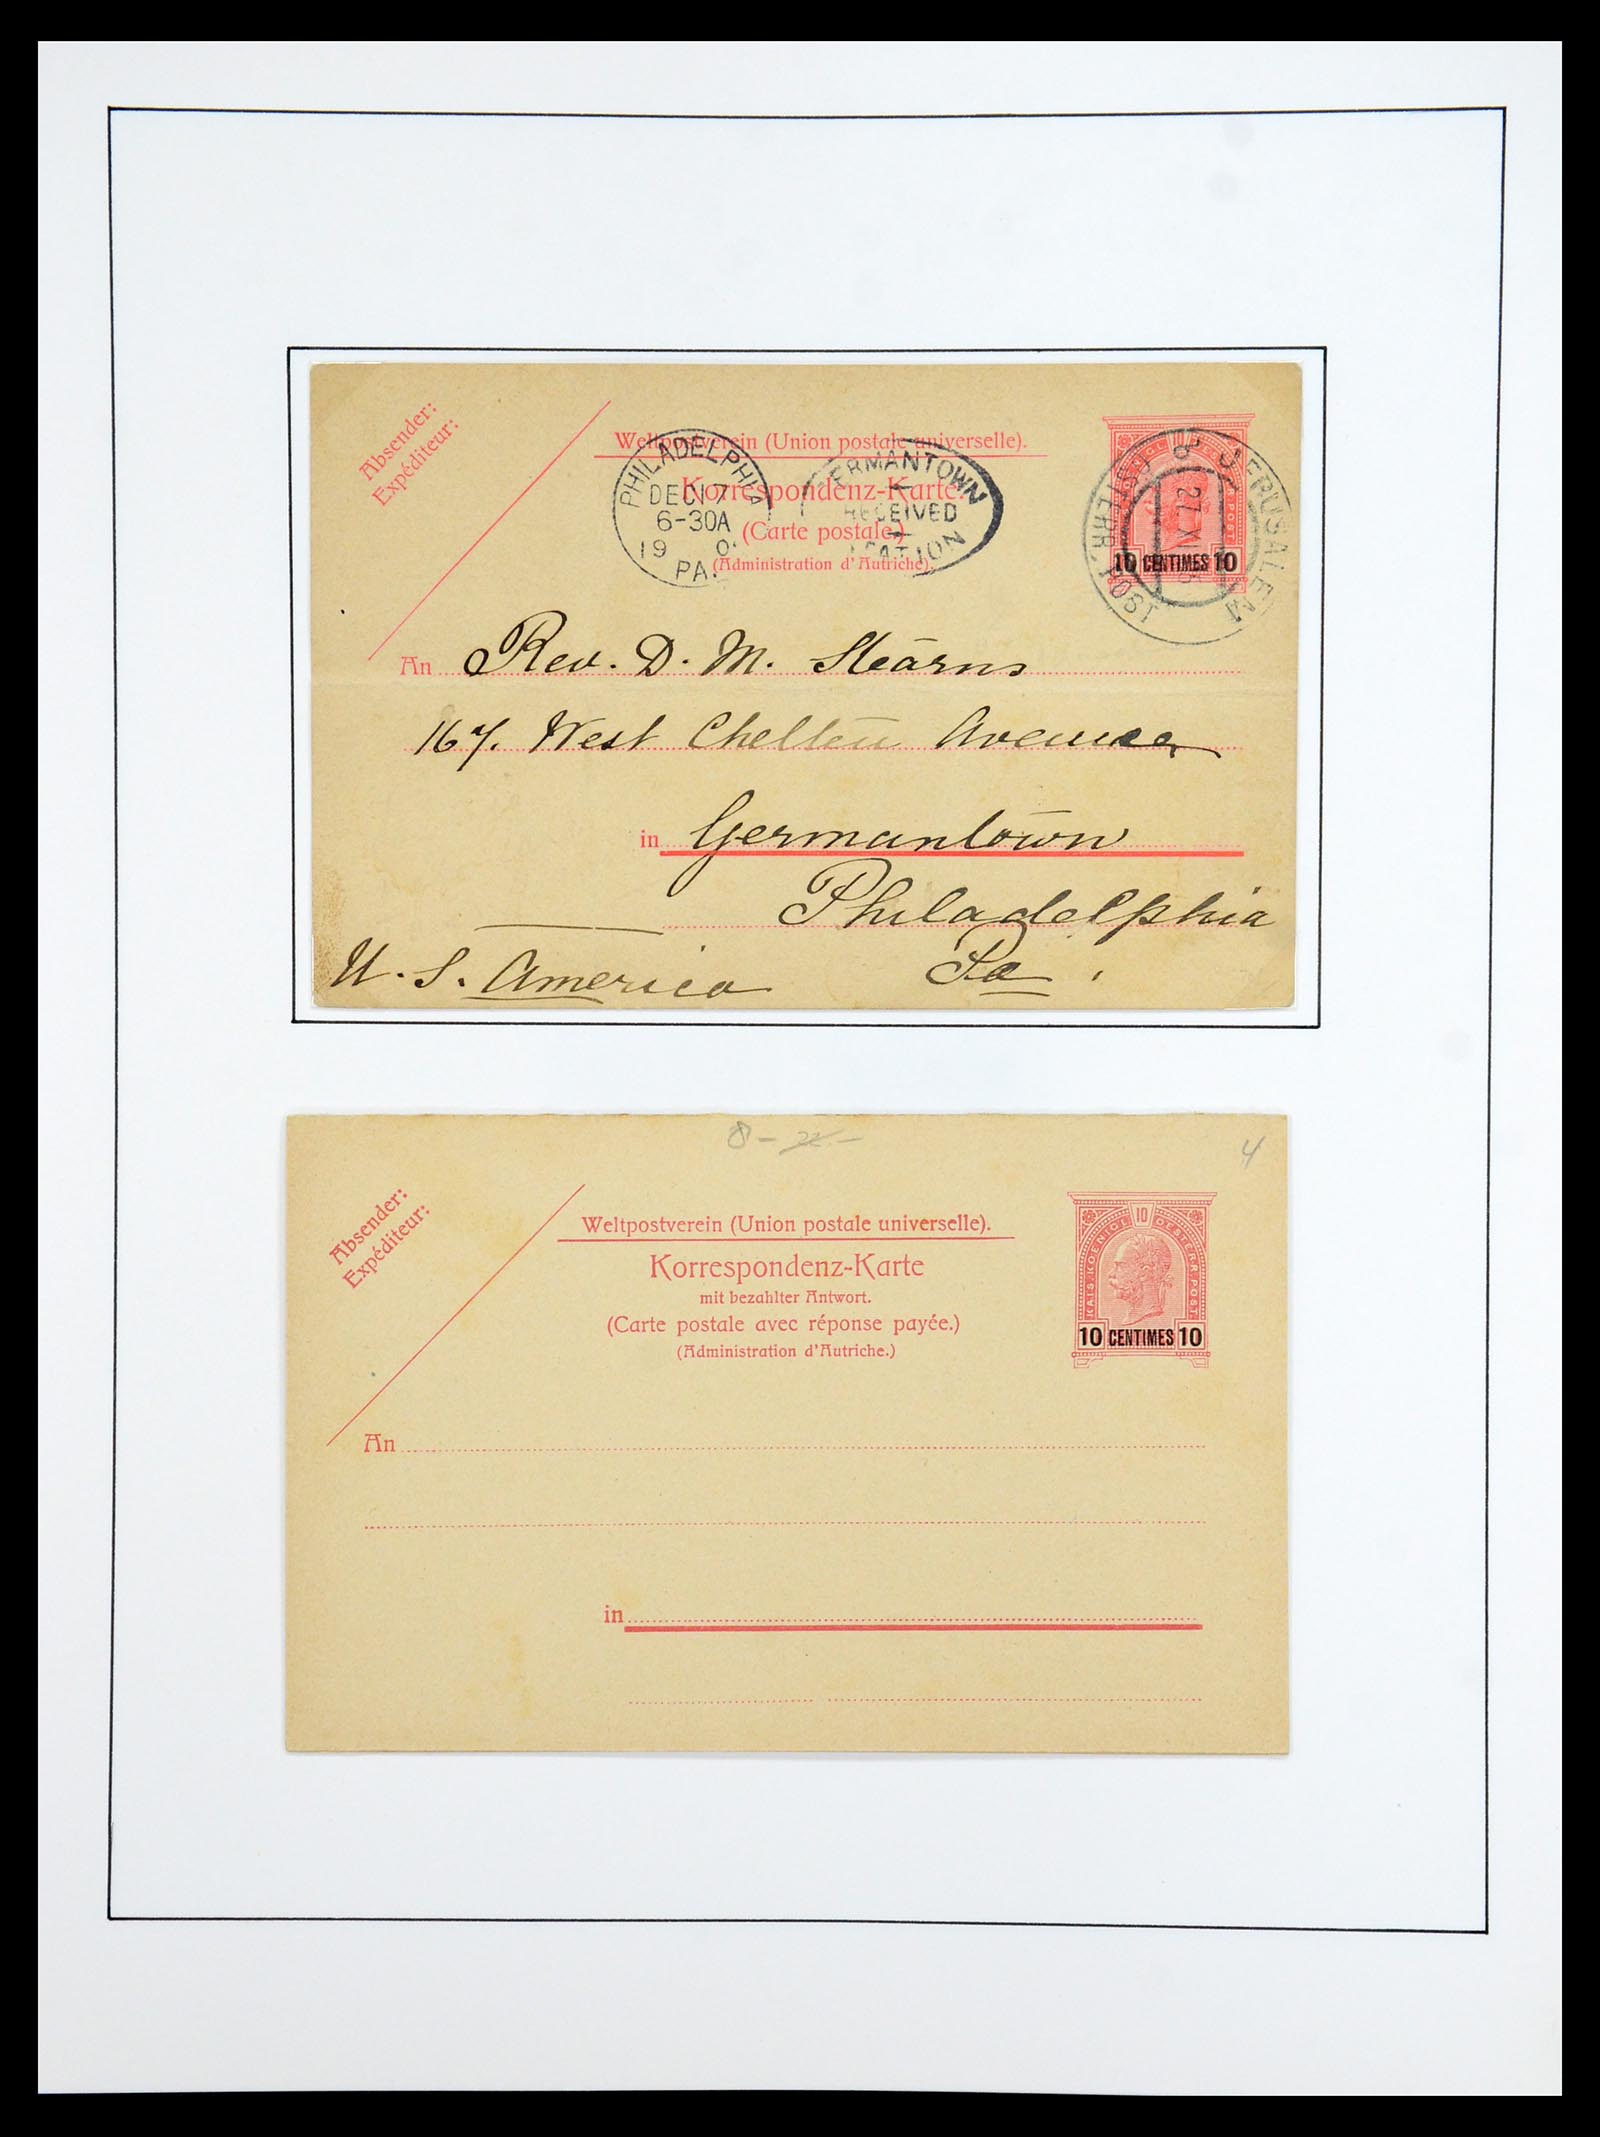 Absender:
Expéditeur:
Weltpostverein (Union postale universelle).
Korrespondenz-Karte
(Carte postale.)
(Administration d'Autriche).
PHILADELPHIA
DEC 17
6-30A
19 0
PA.
GERMANTOWN
RECEIVED
STATION
JERUSALEM
27.XI
ÖSTERR. POST
10 CENTIMES 10
An Rev. D. M. Stearns
167. West Chelten Avenue
in Germantown
Philadelphia
U. S. America Pa.
8 -
4
Absender:
Expéditeur:
Weltpostverein (Union postale universelle).
Korrespondenz-Karte
mit bezahlter Antwort.
(Carte postale avec réponse payée.)
(Administration d'Autriche.)
10
KAIS. KOENIGL. OESTERR. POST
10 CENTIMES 10
An
in